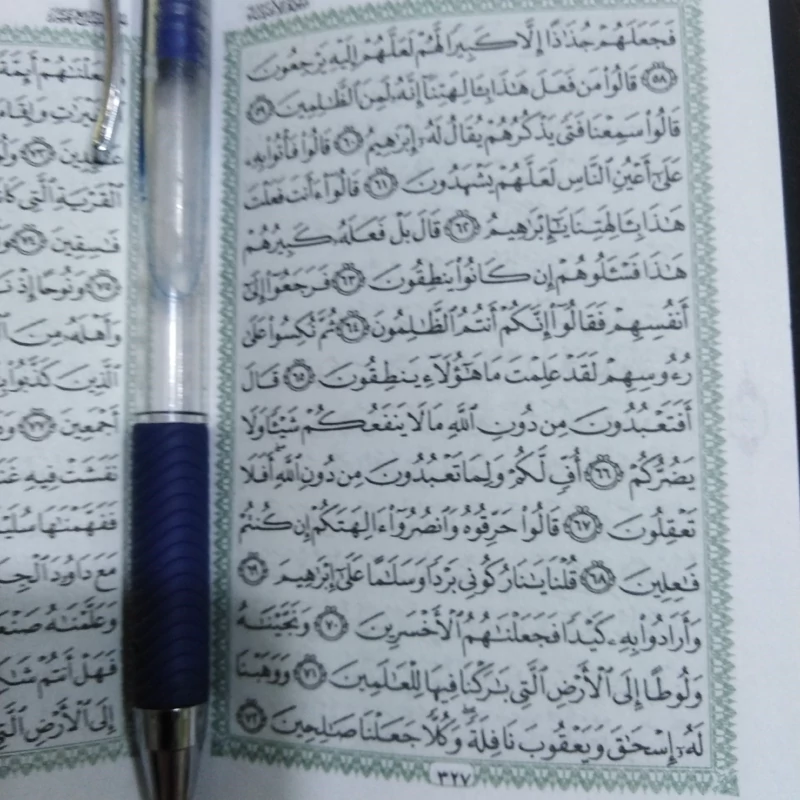 فَجَعَلَهُمْ جُذَٰذًا إِلَّا كَبِيرًا لَّهُمْ لَعَلَّهُمْ إِلَيْهِ يَرْجِعُونَ
٥٨ قَالُوا۟ مَن فَعَلَ هَٰذَا بِـَٔالِهَتِنَآ إِنَّهُۥ لَمِنَ ٱلظَّٰلِمِينَ ٥٩
قَالُوا۟ سَمِعْنَا فَتًى يَذْكُرُهُمْ يُقَالُ لَهُۥٓ إِبْرَٰهِيمُ ٦٠ قَالُوا۟ فَأْتُوا۟ بِهِۦ
عَلَىٰٓ أَعْيُنِ ٱلنَّاسِ لَعَلَّهُمْ يَشْهَدُونَ ٦١ قَالُوٓا۟ ءَأَنتَ فَعَلْتَ
هَٰذَا بِـَٔالِهَتِنَا يَٰٓإِبْرَٰهِيمُ ٦٢ قَالَ بَلْ فَعَلَهُۥ كَبِيرُهُمْ
هَٰذَا فَسْـَٔلُوهُمْ إِن كَانُوا۟ يَنطِقُونَ ٦٣ فَرَجَعُوٓا۟ إِلَىٰٓ
أَنفُسِهِمْ فَقَالُوٓا۟ إِنَّكُمْ أَنتُمُ ٱلظَّٰلِمُونَ ٦٤ ثُمَّ نُكِسُوا۟ عَلَىٰ
رُءُوسِهِمْ لَقَدْ عَلِمْتَ مَا هَٰٓؤُلَآءِ يَنطِقُونَ ٦٥ قَالَ
أَفَتَعْبُدُونَ مِن دُونِ ٱللَّهِ مَا لَا يَنفَعُكُمْ شَيْـًٔا وَلَا
يَضُرُّكُمْ ٦٦ أُفٍّ لَّكُمْ وَلِمَا تَعْبُدُونَ مِن دُونِ ٱللَّهِ ۖ أَفَلَا
تَعْقِلُونَ ٦٧ قَالُوا۟ حَرِّقُوهُ وَٱنصُرُوٓا۟ ءَالِهَتَكُمْ إِن كُنتُمْ
فَٰعِلِينَ ٦٨ قُلْنَا يَٰنَارُ كُونِى بَرْدًا وَسَلَٰمًا عَلَىٰٓ إِبْرَٰهِيمَ ٦٩
وَأَرَادُوا۟ بِهِۦ كَيْدًا فَجَعَلْنَٰهُمُ ٱلْأَخْسَرِينَ ٧٠ وَنَجَّيْنَٰهُ
وَلُوطًا إِلَى ٱلْأَرْضِ ٱلَّتِى بَٰرَكْنَا فِيهَا لِلْعَٰلَمِينَ ٧١ وَوَهَبْنَا
لَهُۥٓ إِسْحَٰقَ وَيَعْقُوبَ نَافِلَةً ۖ وَكُلًّا جَعَلْنَا صَٰلِحِينَ ٧٢
٣٢٧
وَلِقَآءَ
٧٣
ٱلْقَرْيَةِ ٱلَّتِى
فَٰسِقِينَ ٧٤
٧٥ وَنُوحًا إِذْ
وَأَهْلَهُۥ مِنَ
ٱلَّذِينَ كَذَّبُوا۟
أَجْمَعِينَ ٧٧
نَفَشَتْ فِيهِ
فَفَهَّمْنَٰهَا
مَعَ دَاوُۥدَ
وَعَلَّمْنَٰهُ
فَهَلْ أَنتُمْ
إِلَى ٱلْأَرْضِ